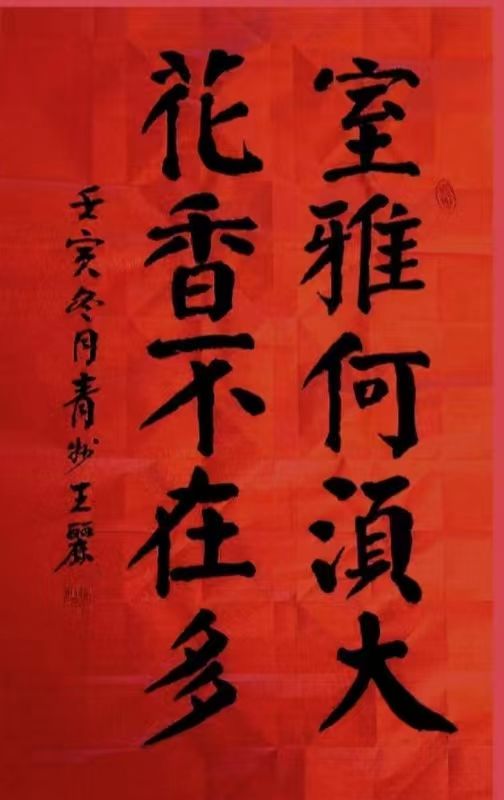 室雅何湏大
花香不在多
壬寅冬月青州王麗